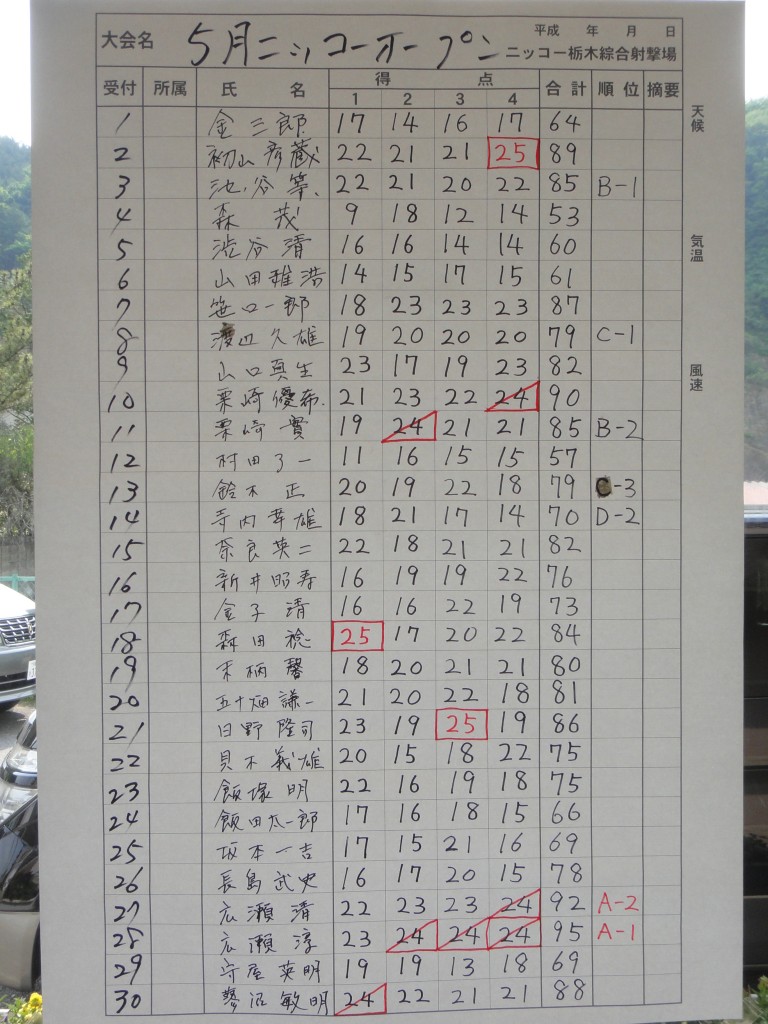 大会名 5月ニッコーオープン 平成 年 月 日
ニッコー栃木綜合射撃場
受付 所属 氏名 得点 合計 順位 摘要
1 2 3 4
天候
気温
風速
1 金三郎 17 14 16 17 64
2 初山彦蔵 22 21 21 25 89
3 池谷等 22 21 20 22 85 B-1
4 森茂 9 18 12 14 53
5 渋谷清 16 16 14 14 60
6 山田雅浩 14 15 17 15 61
7 笹口一郎 18 23 23 23 87
8 渡辺久雄 19 20 20 20 79 C-1
9 山口真生 23 17 19 23 82
10 栗崎優希 21 23 22 24 90
11 栗崎實 19 24 21 21 85 B-2
12 村田了一 11 16 15 15 57
13 鈴木正 20 19 22 18 79 C-3
14 寺内幸雄 18 21 17 14 70 D-2
15 奈良英二 22 18 21 21 82
16 新井昭寿 16 19 19 22 76
17 金子清 16 16 22 19 73
18 森田 25 17 20 22 84
19 末柄馨 18 20 21 21 80
20 五十畑謙一 21 20 22 18 81
21 日野隆司 23 19 25 19 86
22 貝木義雄 20 15 18 22 75
23 飯塚明 22 16 19 18 75
24 飯田太一郎 17 16 18 15 66
25 坂本一吉 17 15 21 16 69
26 長島武史 16 17 20 15 78
27 広瀬清 22 23 23 24 92 A-2
28 広瀬淳 23 24 24 24 95 A-1
29 守屋英明 19 19 13 18 69
30 沼敏明 24 22 21 21 88